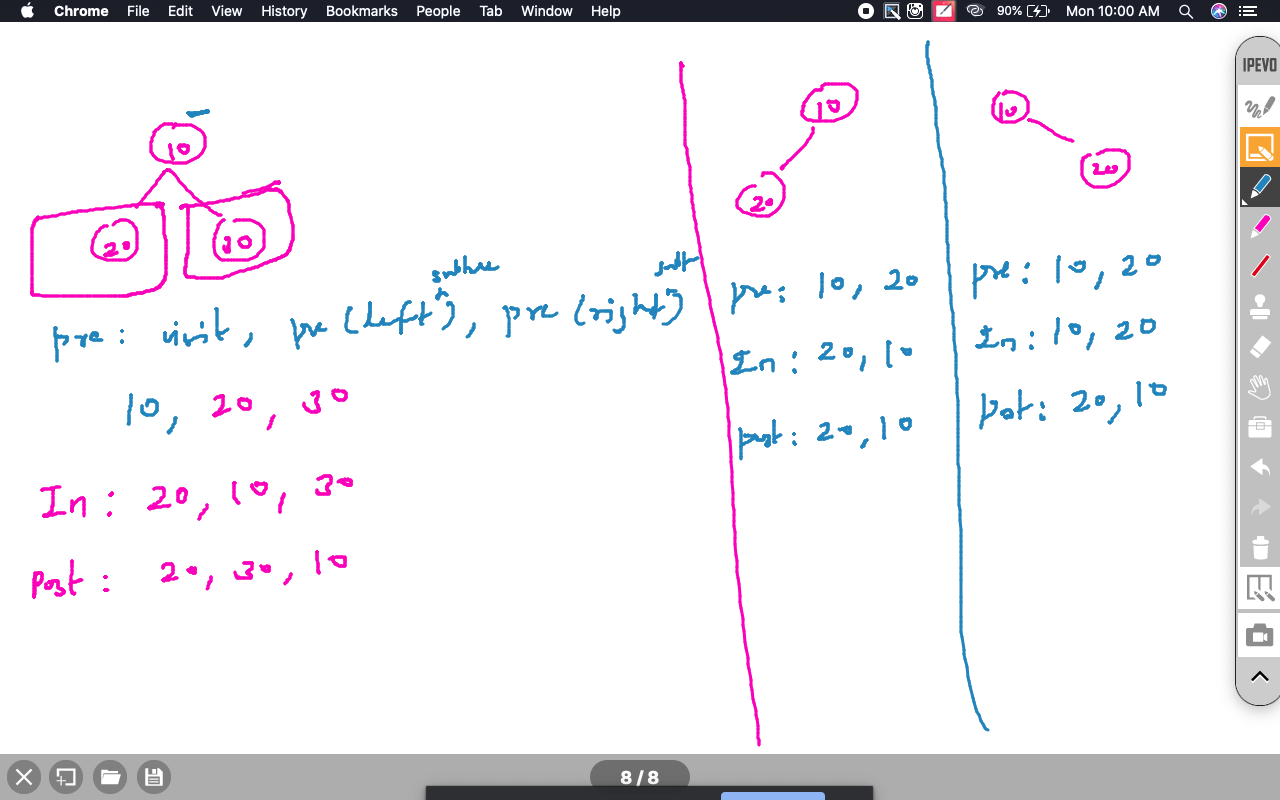 Chrome File Edit View History Bookmarks People Tab Window Help 90% Mon 10:00 AM
IPEVO
10
20 30
subtree subt
pre : visit, pre (left), pre (right)
10, 20, 30
In : 20, 10, 30
Post : 20, 30, 10
10
20
pre: 10, 20
In : 20, 10
post : 20, 10
10
20
pre : 10, 20
In : 10, 20
pot : 20, 10
8 / 8